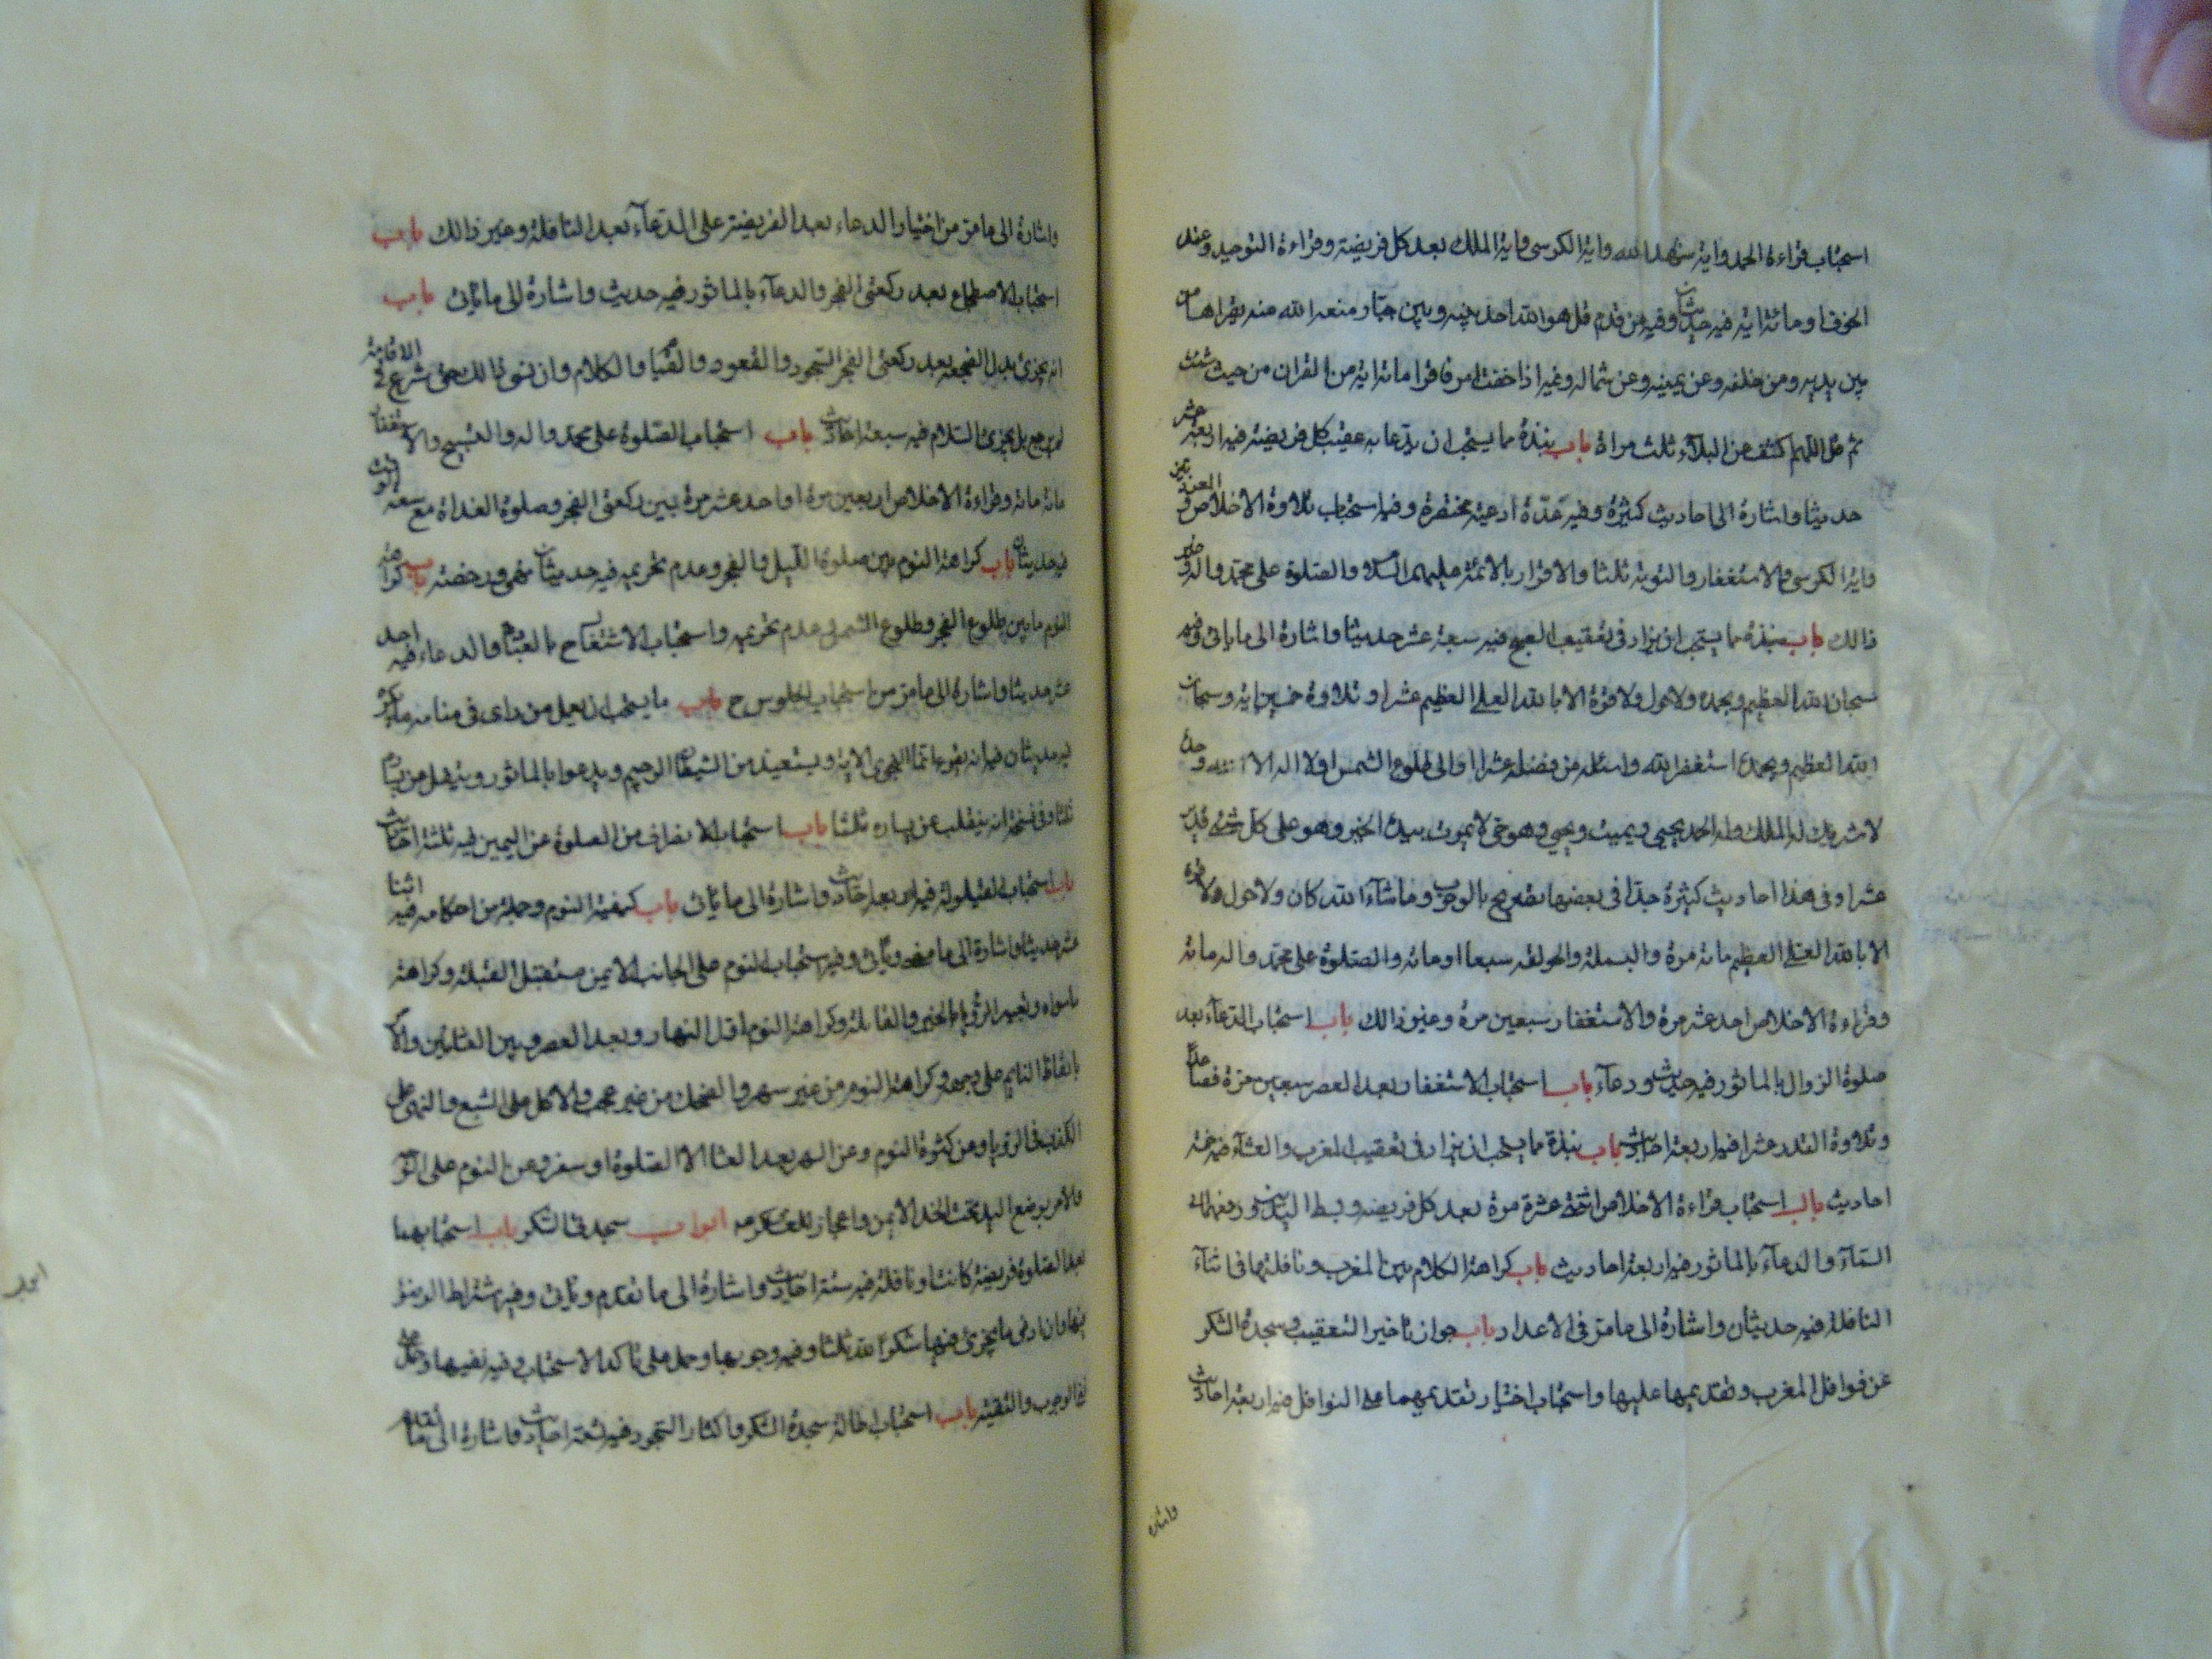 استحباب قراءة الحمد واية شهد الله واية الكرسى واية الملك بعد كل فريضة وقراءة التوحيد وعند
الخوف او مائة اية فيه حديثان وفيه من قدم قل هو الله احد بينه وبين جبار منعه الله منه يقراها من
بين يديه ومن خلفه وعن يمينه وعن شماله وغيره اذا خفت امرا فاقرا مائة اية من القران من حيث شئت
ثم قل اللهم اكشف عنى البلاء ثلث مراة باب نبذة مما يستحب ان يدعا به عقيب كل فريضة فيه اربعة عشر
حديثا واشارة الى احاديث كثيرة وفيه عدة ادعية مختصرة وفيها استحباب تلاوة الاخلاص
واية الكرسى والاستغفار والتوبة ثلثا والاقرار بالائمة عليهم السلام والصلوة على محمد واله وغير
ذالك باب نبذة مما يستحب ان يزاد فى تعقيب الصبح فيه سبعة عشر حديثا واشارة الى ما ياتى وفيه
سبحان الله العظيم وبحمده ولا حول ولا قوة الا بالله العلى العظيم عشرا وتلاوة خمسين اية وسبحان
الله العظيم وبحمده استغفر الله واسئله من فضله عشرا والى طلوع الشمس اولا اله الا الله وحده
لا شريك له له الملك وله الحمد يحيى ويميت ويميت ويحيي وهو حى لا يموت بيده الخير وهو على كل شئ قدير
عشرا وفى هذا احاديث كثيرة جدا فى بعضها تصريح بالوجوب وما شاء الله كان ولا حول ولا قوة
الا بالله العلى العظيم مائة مرة والبسملة والحولقة سبعا او مائة والصلوة على محمد واله مائة
وقراءة الاخلاص احد عشر مرة والاستغفار سبعين مرة وغير ذالك باب استحباب الدعاء بعد
صلوة الزوال بالماثور فيه حديث ودعاء باب استحباب الاستغفار بعد العصر سبعين مرة فصاعدا
وتلاوة القدر عشرا فيه اربعة احاديث باب نبذة مما يستحب ان يزاد فى تعقيب المغرب والعشاء فيه خمسة
احاديث باب استحباب قراءة الاخلاص اثنتى عشرة مرة بعد كل فريضة وبسط اليدين ورفعهما الى
السماء والدعاء بالماثور فيه اربعة احاديث باب كراهة الكلام بين المغرب ونافلتها فى اثناء
النافلة فيه حديثان واشارة الى ما مر فى الاعداد باب جواز تاخير التعقيب وسجدة الشكر
عن نوافل المغرب وتقديمها عليها واستحباب اختيار تقديمهما على النوافل فيه اربعة احاديث
واشارة
واشارة الى ما مر من اختيار الدعاء بعد الفريضة على الدعاء بعد النافلة وغير ذالك باب
استحباب الاضطجاع بعد ركعتى الفجر والدعاء بالماثور فيه حديث واشارة الى ما ياتى باب
انه يجزئ بدل الضجعة بعد ركعتى الفجر السجود والقعود والقيام والكلام وان نسى ذالك حتى شرع فى الاقامة
لم يرجع بل يجزئ السلام فيه سبعة احاديث باب استحباب الصلوة على محمد واله والتسبيح والاستغفار
مائة مائة وقراءة الاخلاص اربعين مرة او احد عشر مرة بين ركعتى الفجر وصلوة الغداة مع سعة الوقت
فيه حديثان باب كراهة النوم بين صلوة الليل والفجر وعدم تحريمه فيه حديثان نهى ورخصة باب كراهة
النوم ما بين طلوع الفجر وطلوع الشمس وعدم تحريمه واستحباب الاشتغال بالعبادة والدعاء فيه احد
عشر حديثا واشارة الى ما مر من استحباب الجلوس ح باب ما يستحب ان يعمل من راى فى منامه ما يكره
فيه حديثان فيه انه يقرء انما النجوى الاية ويستعيذ من الشيطان الرجيم ويدعوا بالماثور ويتفل عن يساره
ثلثا وفى نسخة انه ينقلب عن يساره ثلثا باب استحباب الانصراف من الصلوة عن اليمين فيه ثلثة احاديث
باب استحباب القيلولة فيه اربعة احاديث واشارة الى ما ياتى باب كيفية النوم وجملة من احكامه فيه اثنا
عشر حديثا واشارة الى ما مر وياتى وفيه استحباب النوم على الجانب الايمن مستقبل القبلة وكراهة
ما سواه وتعبير الرؤيا بالخير والقائلة وكراهة النوم اول النهار وبعد العصر وبين العشائين والامر
بايقاظ النايم على وجهه وكراهة النوم من غير سهر والضحك من غير عجب والاكل على الشبع والنهى عن
الكذب فى الرؤيا ومن كثرة النوم وعن السهر بعد العشا الا لصلوة او سفر وعن النوم على
والامر بوضع اليد تحت الخد الايمن واعجاز للعسكرى م ابواب سجدتى الشكر باب استحبابهما
بعد الصلوة فريضة كانت او نافلة فيه ستة احاديث واشارة الى ما تقدم وياتى وفيه اشتراط الوضوء
فيها وان ادنى ما يجزئ فيها شكرا لله ثلثا وفيه وجوبها وحمل على تاكد الاستحباب وفيه نفيها وحمل على
نفى الوجوب والتقية باب استحباب اطالة سجدة الشكر واكثار السجود فيه تسعة احاديث واشارة الى ما تقدم